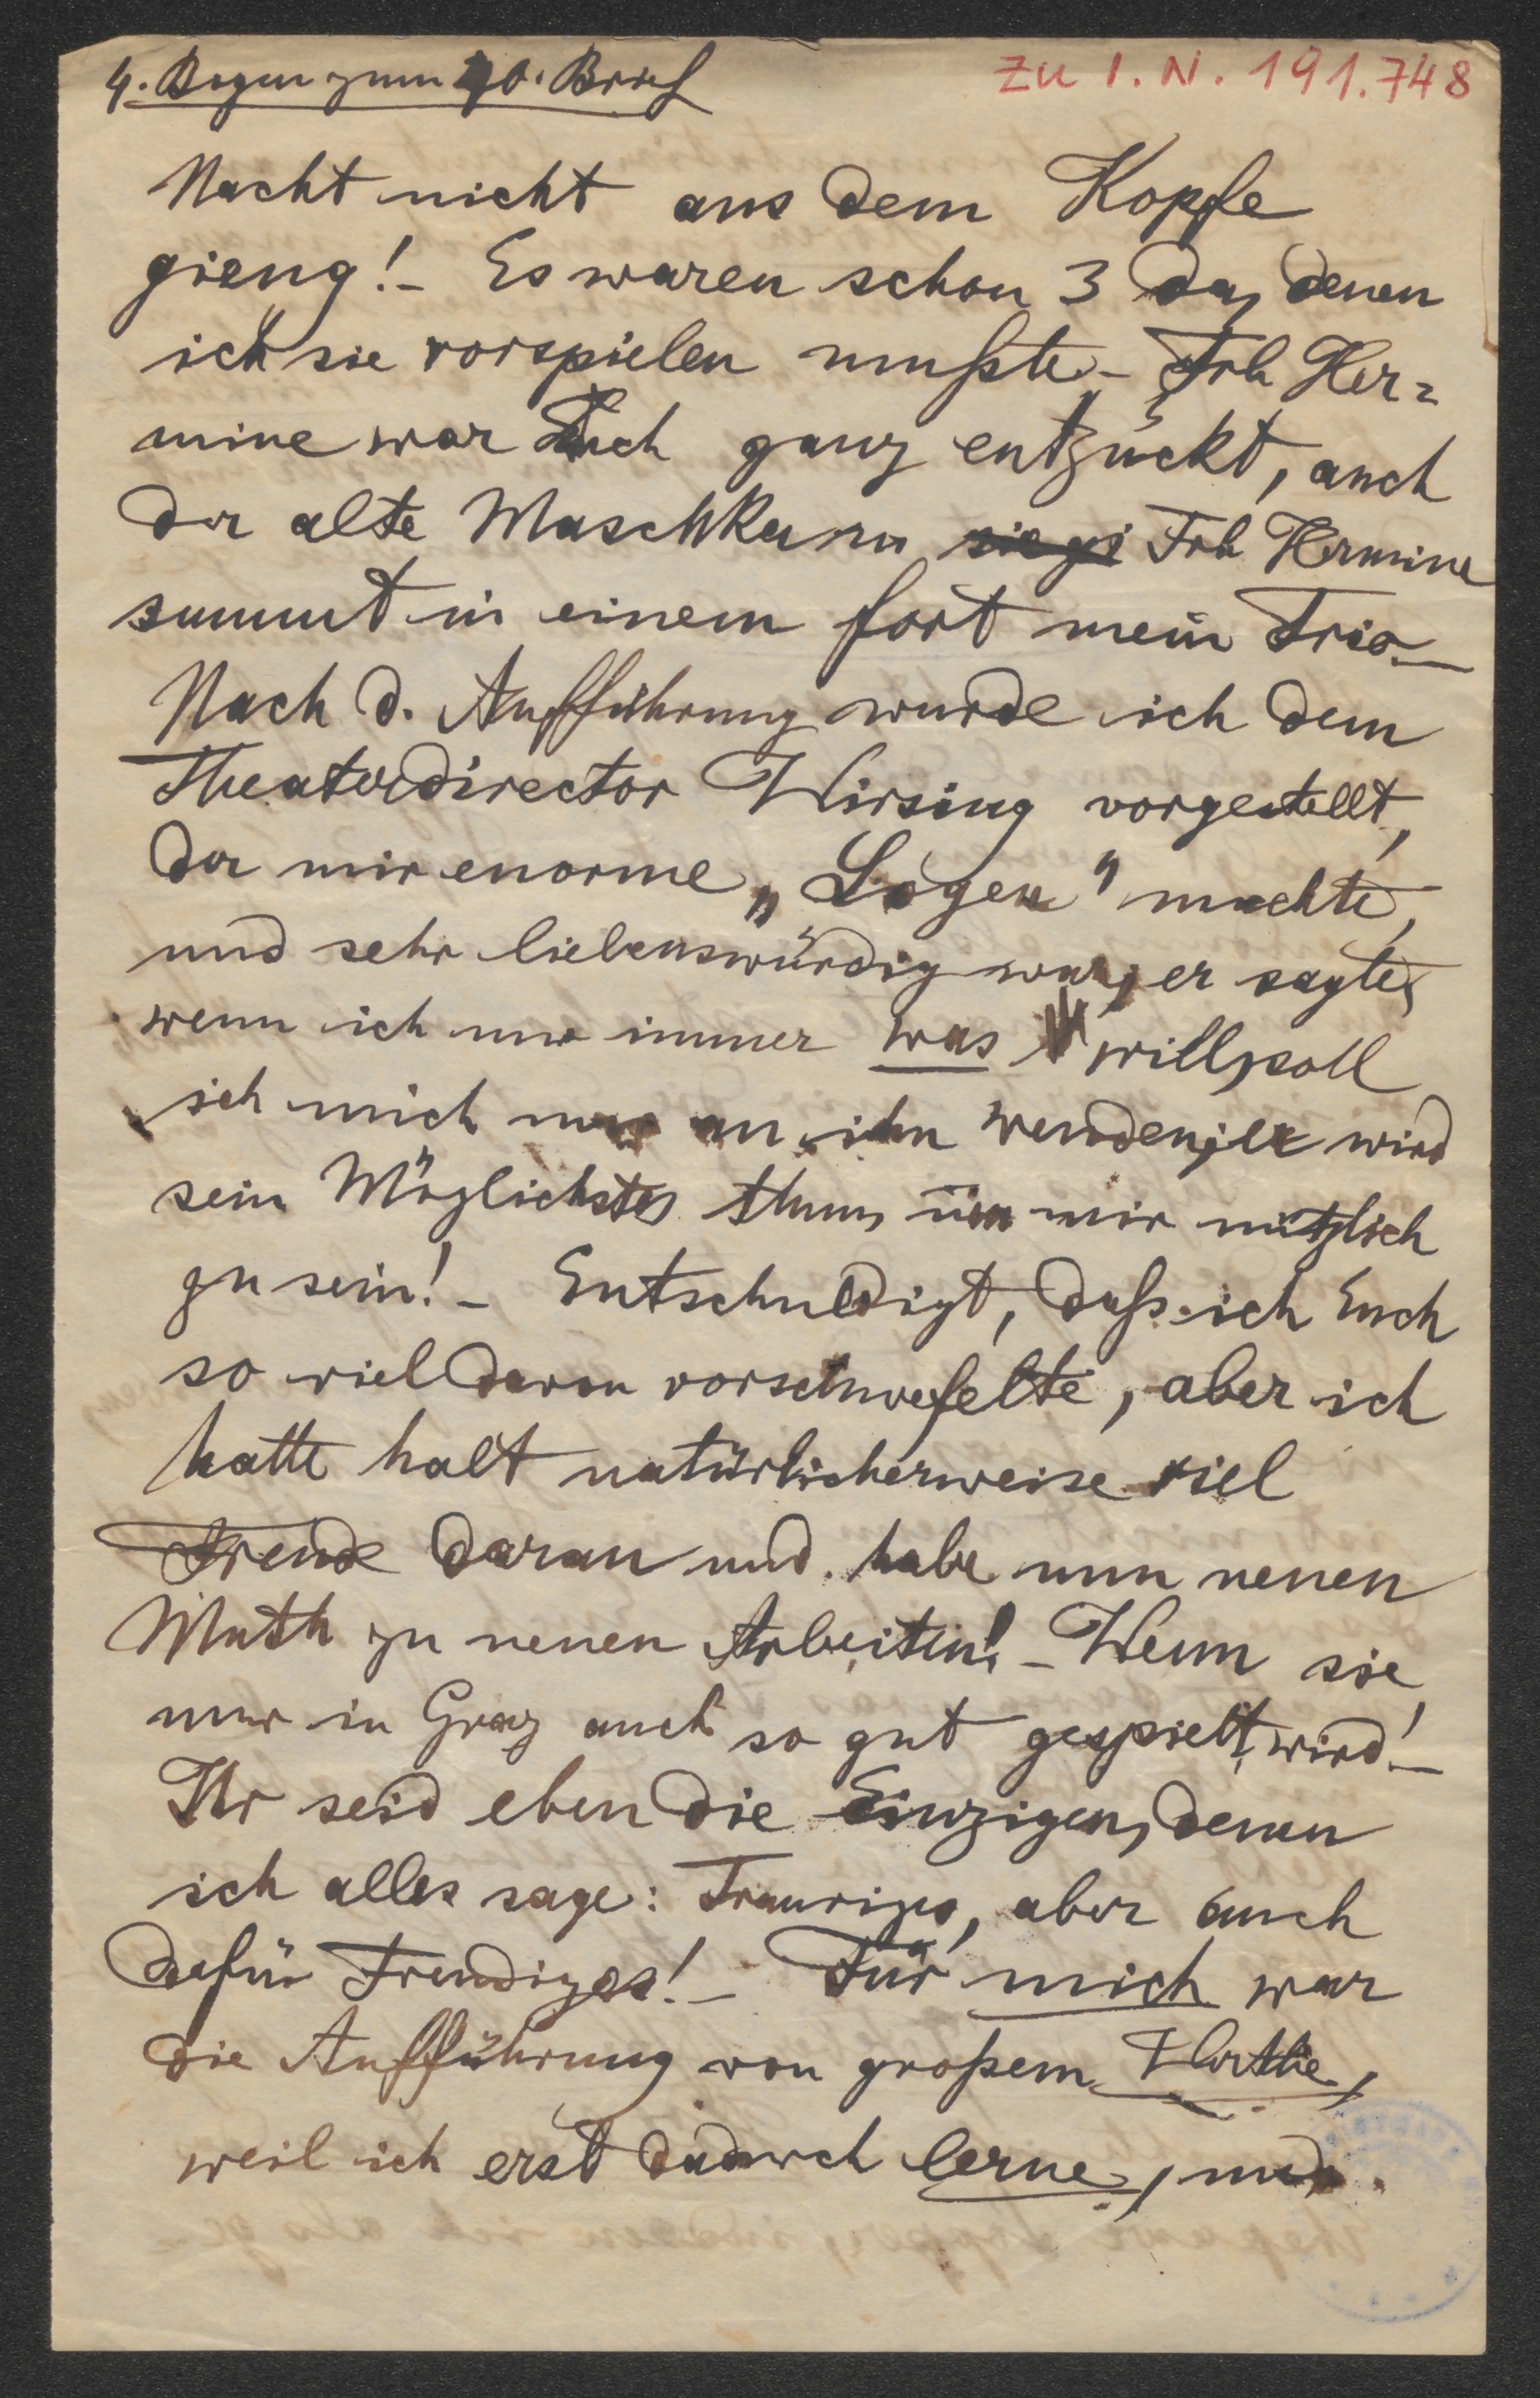 4. Bogen zum 20. Brief
Zu I. N. 191.748
Nacht nicht aus dem Kopfe
gieng! – Es waren schon 3 da, denen
ich sie vorspielen mußte – Frl. Her=
mine war auch ganz entzückt, auch
der alte Maschkan Frl Hermine
summt in einem fort mein Trio. –
Nach d. Aufführung wurde ich dem
Theaterdirector Wirsing vorgestellt,
der mir enorme „Logen" machte,
und sehr liebenswürdig war, er sagte,
wenn ich nur immer was will, soll
ich mich nur an ihn wenden, er wird
sein Möglichstes thun, um mir nützlich
zu sein! – Entschuldigt, daß ich Euch
so viel davon vorschwefelte, aber ich
hatte halt natürlicherweise viel
Freude daran und habe nun neuen
Muth zu neuen Arbeiten! – Wenn sie
nur in Graz auch so gut gespielt wird! –
Ihr seid eben die Einzigen, denen
ich alles sage: Trauriges, aber auch
dafür Freudiges! – Für mich war
die Aufführung von großem
weil ich erst dadurch lerne, und